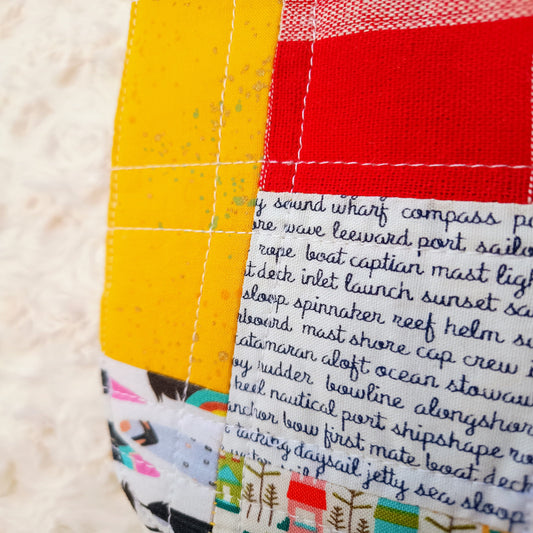 sound wharf compass
wave leeward port sailo
rope boat captian mast ligh
deck inlet launch sunset sa
sloop spinnaker reef helm su
rboard mast shore cap crew i
catamaran aloft ocean stowaw
rudder bowline alongshor
heel nautical port shipshape ro
anchor bow first mate boat deck
tacking daysail jetty sea sloop